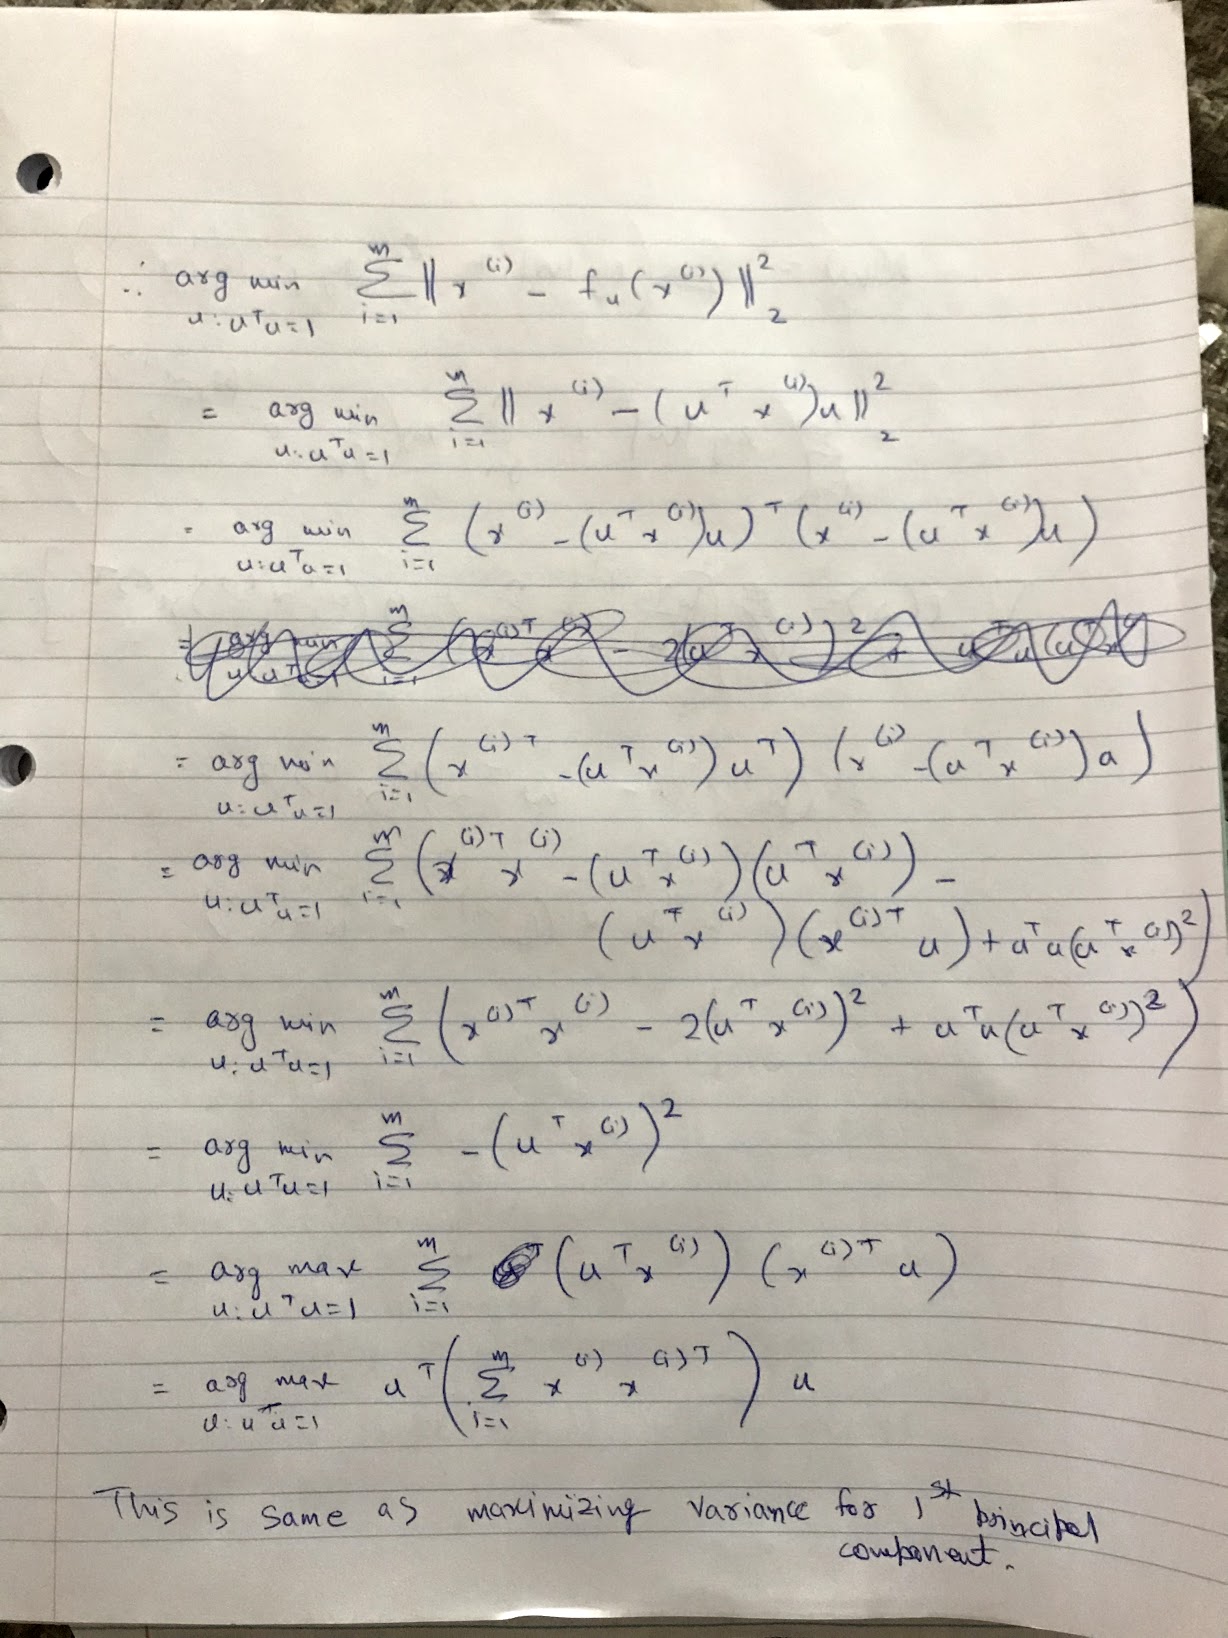 ∴ arg min_{u:uᵀu=1} Σ_{i=1}^{m} ‖x^{(i)} - f_u(x^{(i)})‖₂²
= arg min_{u:uᵀu=1} Σ_{i=1}^{m} ‖x^{(i)} - (uᵀx^{(i)})u‖₂²
= arg min_{u:uᵀu=1} Σ_{i=1}^{m} (x^{(i)} - (uᵀx^{(i)})u)ᵀ (x^{(i)} - (uᵀx^{(i)})u)
= arg min_{u:uᵀu=1} Σ_{i=1}^{m} (x^{(i)T} - (uᵀx^{(i)})uᵀ) (x^{(i)} - (uᵀx^{(i)})u)
= arg min_{u:uᵀu=1} Σ_{i=1}^{m} (x^{(i)T} x^{(i)} - (uᵀx^{(i)})(uᵀx^{(i)}) -
(uᵀx^{(i)})(x^{(i)T}u) + uᵀu(uᵀx^{(i)})²)
= arg min_{u:uᵀu=1} Σ_{i=1}^{m} (x^{(i)T} x^{(i)} - 2(uᵀx^{(i)})² + uᵀu(uᵀx^{(i)})²)
= arg min_{u:uᵀu=1} Σ_{i=1}^{m} -(uᵀx^{(i)})²
= arg max_{u:uᵀu=1} Σ_{i=1}^{m} (uᵀx^{(i)}) (x^{(i)T}u)
= arg max_{u:uᵀu=1} uᵀ(Σ_{i=1}^{m} x^{(i)} x^{(i)T}) u
This is same as maximizing variance for 1st principal
component.